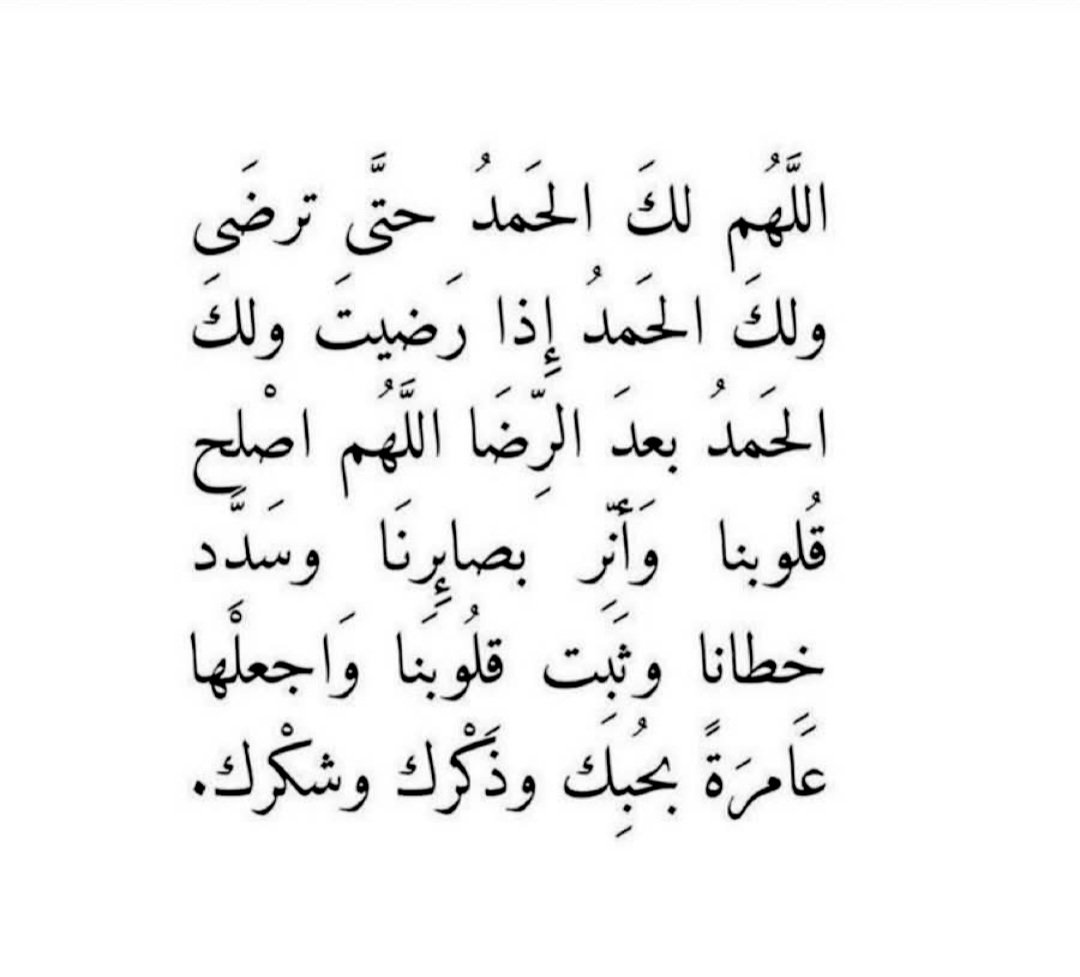 اللَّهُم لكَ الحَمدُ حتَّى ترضَى
ولكَ الحَمدُ إِذا رَضيتَ ولكَ
الحَمدُ بعدَ الرِّضَا اللَّهُم اصْلح
قُلوبنا وَأَنّر بصايِرنَا وسَدَّد
خطانا وثَبِت قلُوبنَا وَاجعلْها
عَامرَةً بحُبِك وذَكْرك وشكْرك.